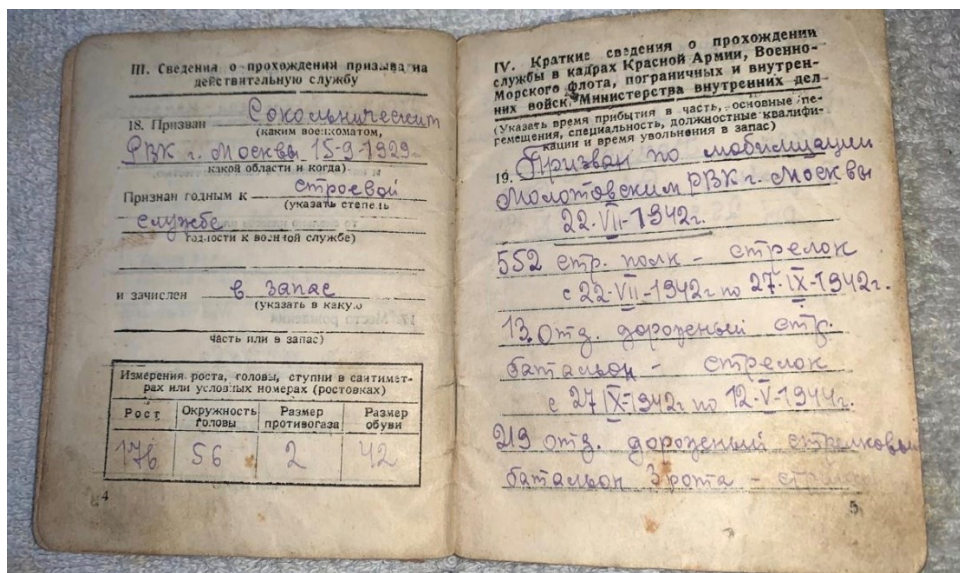 III. Сведения о прохождении призыва на
действительную службу
18. Призван Сокольническим
(каким военкоматом,
РВК г. Москвы 15-9-1929
какой области и когда)
Признан годным к строевой
(указать степень
службе
годности к военной службе)
и зачислен в запас
(указать в какую
часть или в запас)
Измерения роста, головы, ступни в сантимет-
рах или условных номерах (ростовках)
Рост Окружность головы Размер противогаза Размер обуви
176 56 2 42
4
IV. Краткие сведения о прохождении
службы в кадрах Красной Армии, Военно-
Морского флота, пограничных и внутрен-
них войск Министерства внутренних дел
(Указать время прибытия в часть, основные пе-
ремещения, специальность, должностные квалифи-
кации и время увольнения в запас)
19. Призван по мобилизации
Молотовским РВК г. Москвы
22-VII-1942г.
552 стр. полк - стрелок
с 22-VII-1942г по 27-IX-1942г.
13. отд. дорожный стр.
батальон - стрелок
с 27 IX-1942г по 12-V-1944г.
219 отд. дорожный стрелковый
батальон 3 рота - стрелок
5